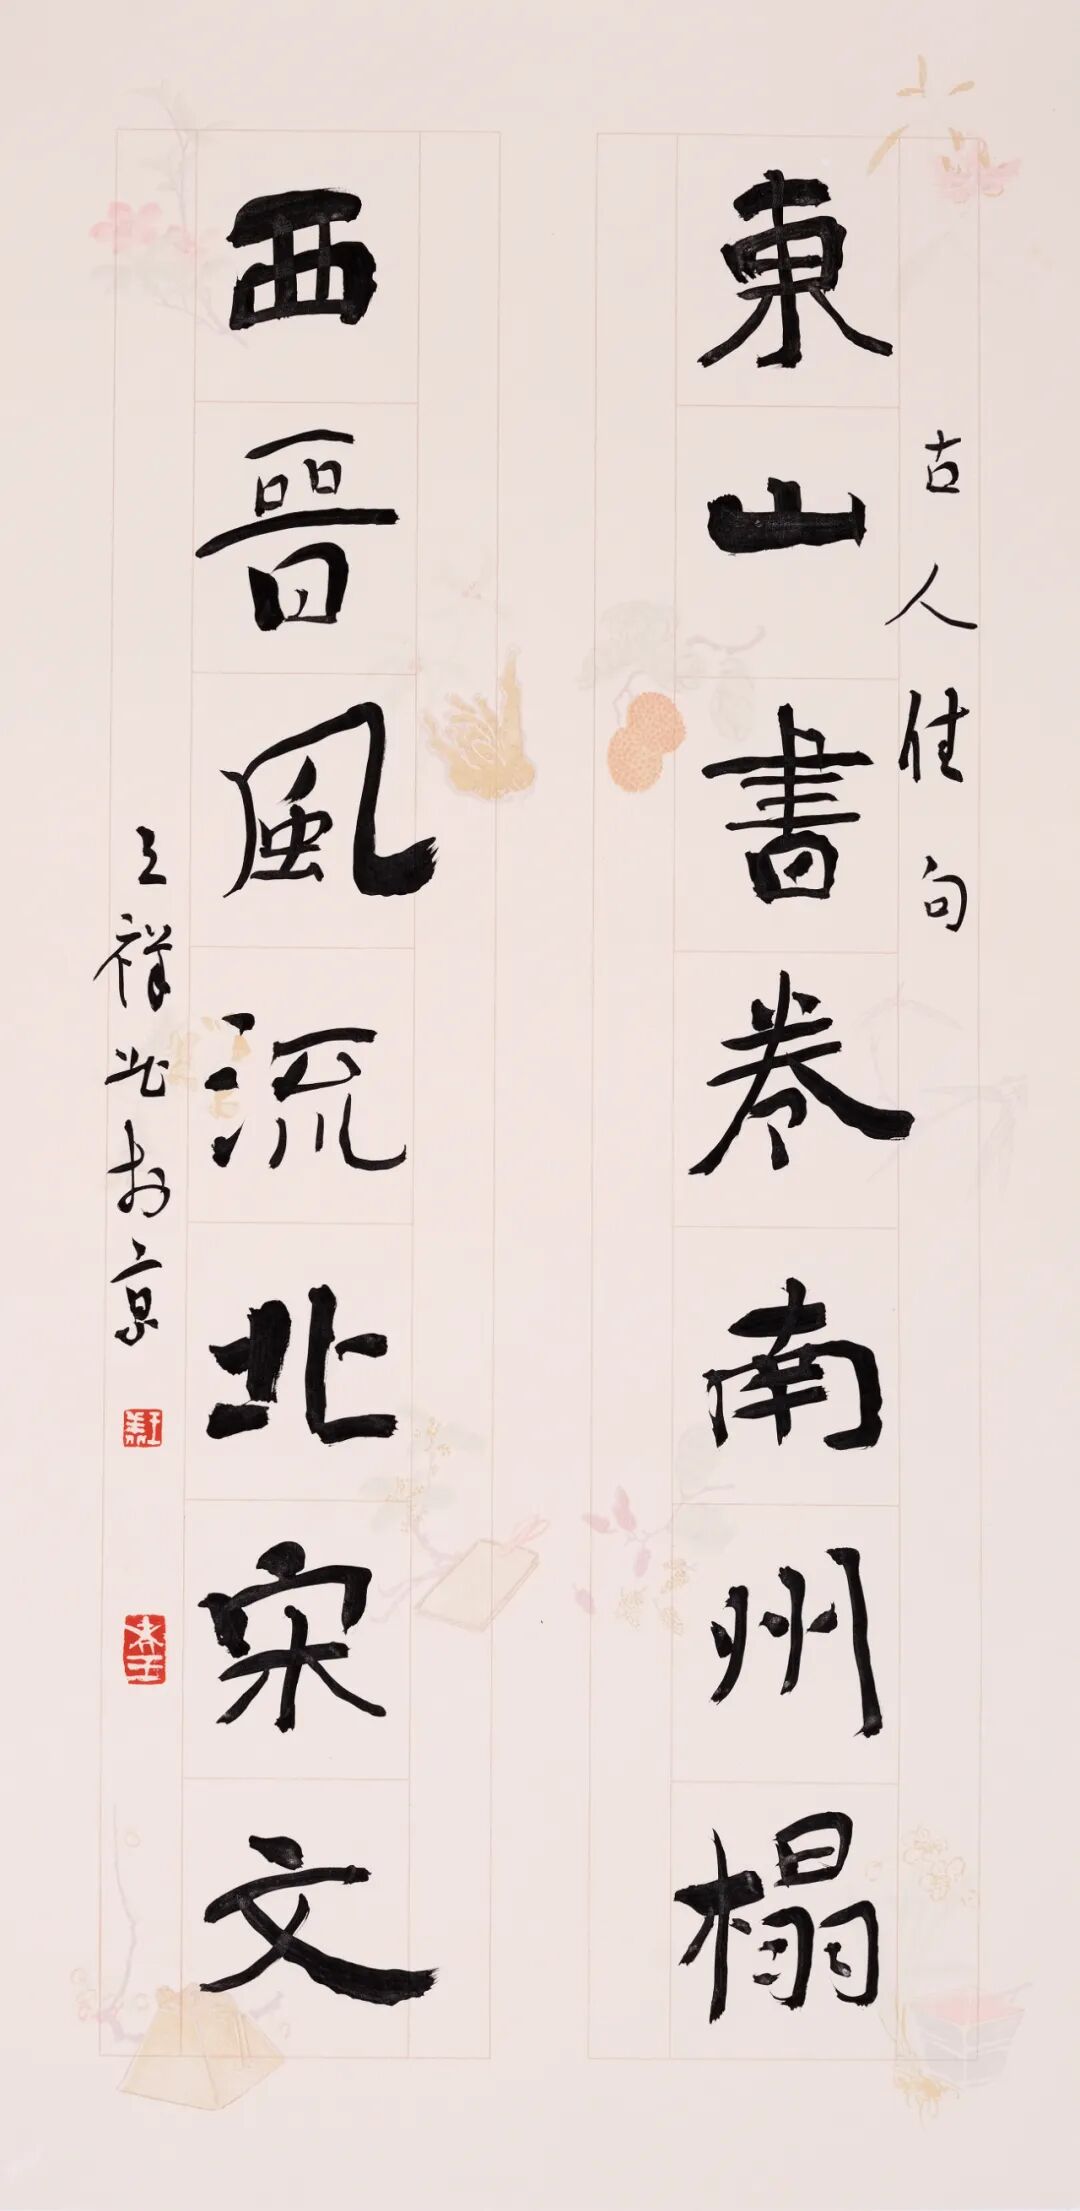 古人佳句
東山書卷南州榻
西晉風流北宋文
祥於京